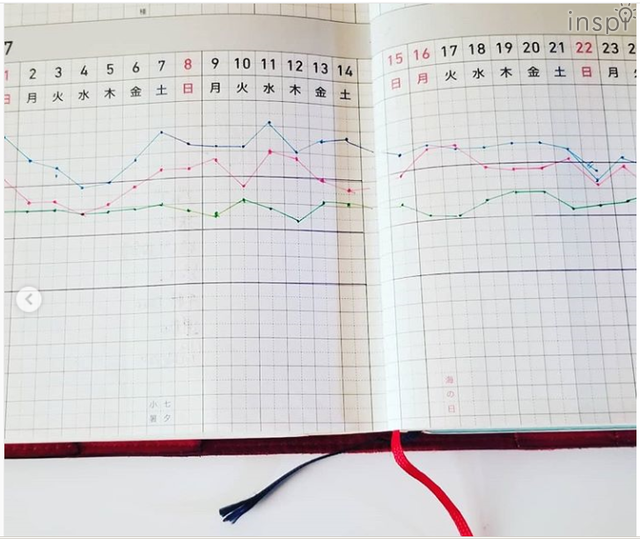 inspi
7
1 2 3 4 5 6 7 8 9 10 11 12 13 14
日 月 火 水 木 金 土 日 月 火 水 木 金 土
15 16 17 18 19 20 21 22 23
日 月 火 水 木 金 土 日 月
七夕
小暑
海の日